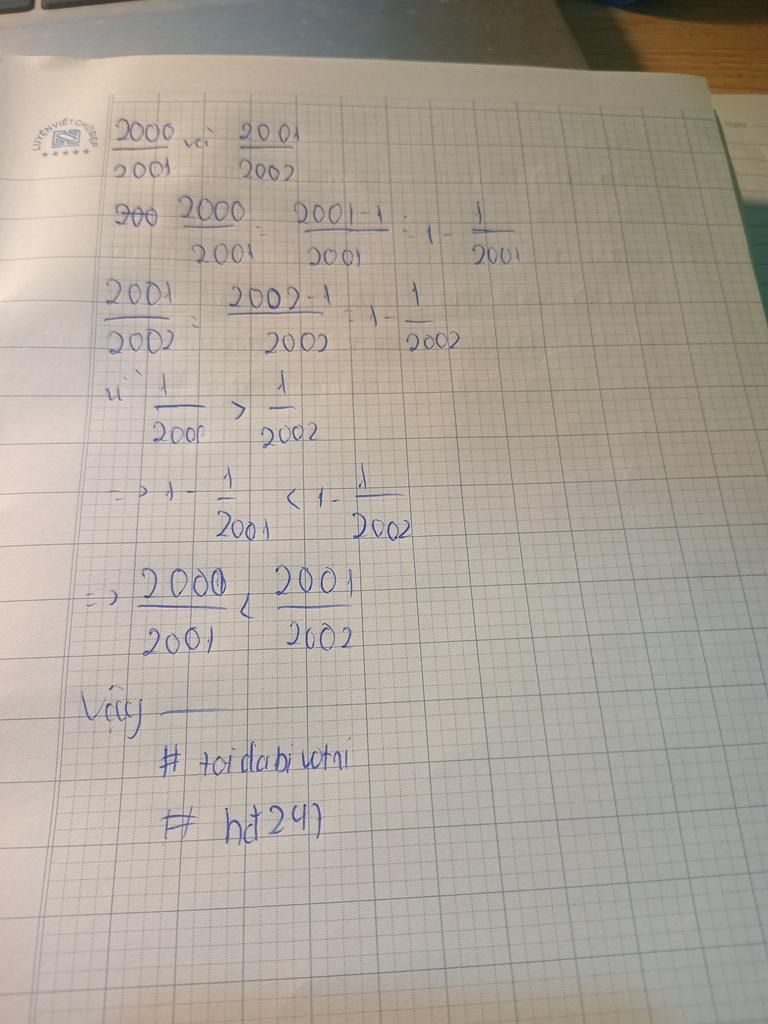 LUYỆN VIẾT CHỮ ĐẸP
2000/2001 với 2001/2002
200 2000/2001 = 2001-1/2001 = 1 - 1/2001
2001/2002 = 2002-1/2002 = 1 - 1/2002
vì 1/2001 > 1/2002
=> 1 - 1/2001 < 1 - 1/2002
=> 2000/2001 < 2001/2002
Vậy ——
# toidabivotni
# hdt247